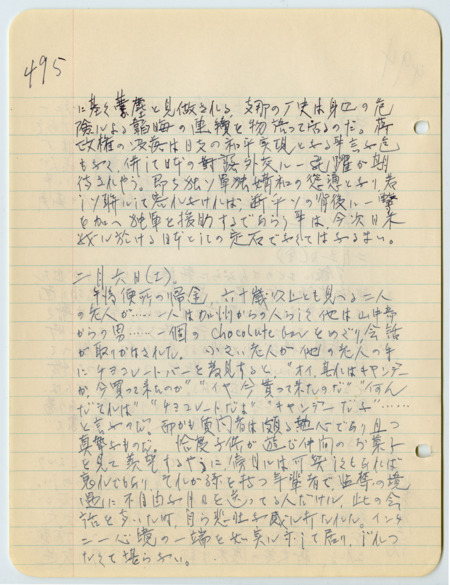 495
に基く 見做される。支那の歴史は身辺の危
険による韜晦の連續を物語って居るのだ。蒋
政権の は日支の和平実現となる事言ふ迄
もなく、併して日本の對 外交に一 が期
待されやう。即ち独ソ單独媾和の であり、若
ソ聯にして ければ、断乎ソの背後に一撃
を加へ独軍を援助するであらう事は、今次日米
戦に於ける日本としての定石でなくてはなるまい。
二月六日(土)
午后便所の帰途、六十歳以上とも見へる二人
の老人が……一人は加州からの人らしく他は山中部
からの男……一個のchocolate barをめぐり会話
が取りかはされた。小さい老人が他の老人の手
にチヨコレートバーを発見すると、"オイ、其れはキャンデー
か、今買って来たのか" "イヤ今貰って来たのだ" "何ん
だそれは" "チヨコレートだよ" "キャンデーだナ"……
と言ふのだ。而かも質問者は頗る熱心であり且つ
真 なものだ。恰度子供が遊び仲間のお菓子
を見て羨望するやうに傍目には可笑しくもあれば
哀れでもあり、それが孫を持つ年輩者で監禁の境
遇に不自由な月日を送ってる人だけに、此の会
話を聞いた時、自ら悲壮な感に打たれた。インタ
ニー心境の一端を如実に示して居り、じれつ
たくて堪らない。